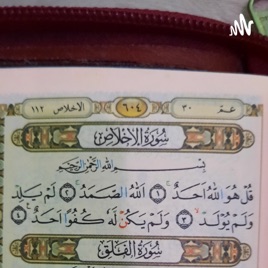 عم ٣٠ ٦٠٤ الاخلاص ١١٢
سُورَةُ الإِخْلَاصِ
بِسْمِ اللَّهِ الرَّحْمَٰنِ الرَّحِيمِ
قُلْ هُوَ اللَّهُ أَحَدٌ ١ اللَّهُ الصَّمَدُ ٢ لَمْ يَلِدْ
وَلَمْ يُولَدْ ٣ وَلَمْ يَكُنْ لَهُ كُفُوًا أَحَدٌ ٤
سُورَةُ الْفَلَقِ